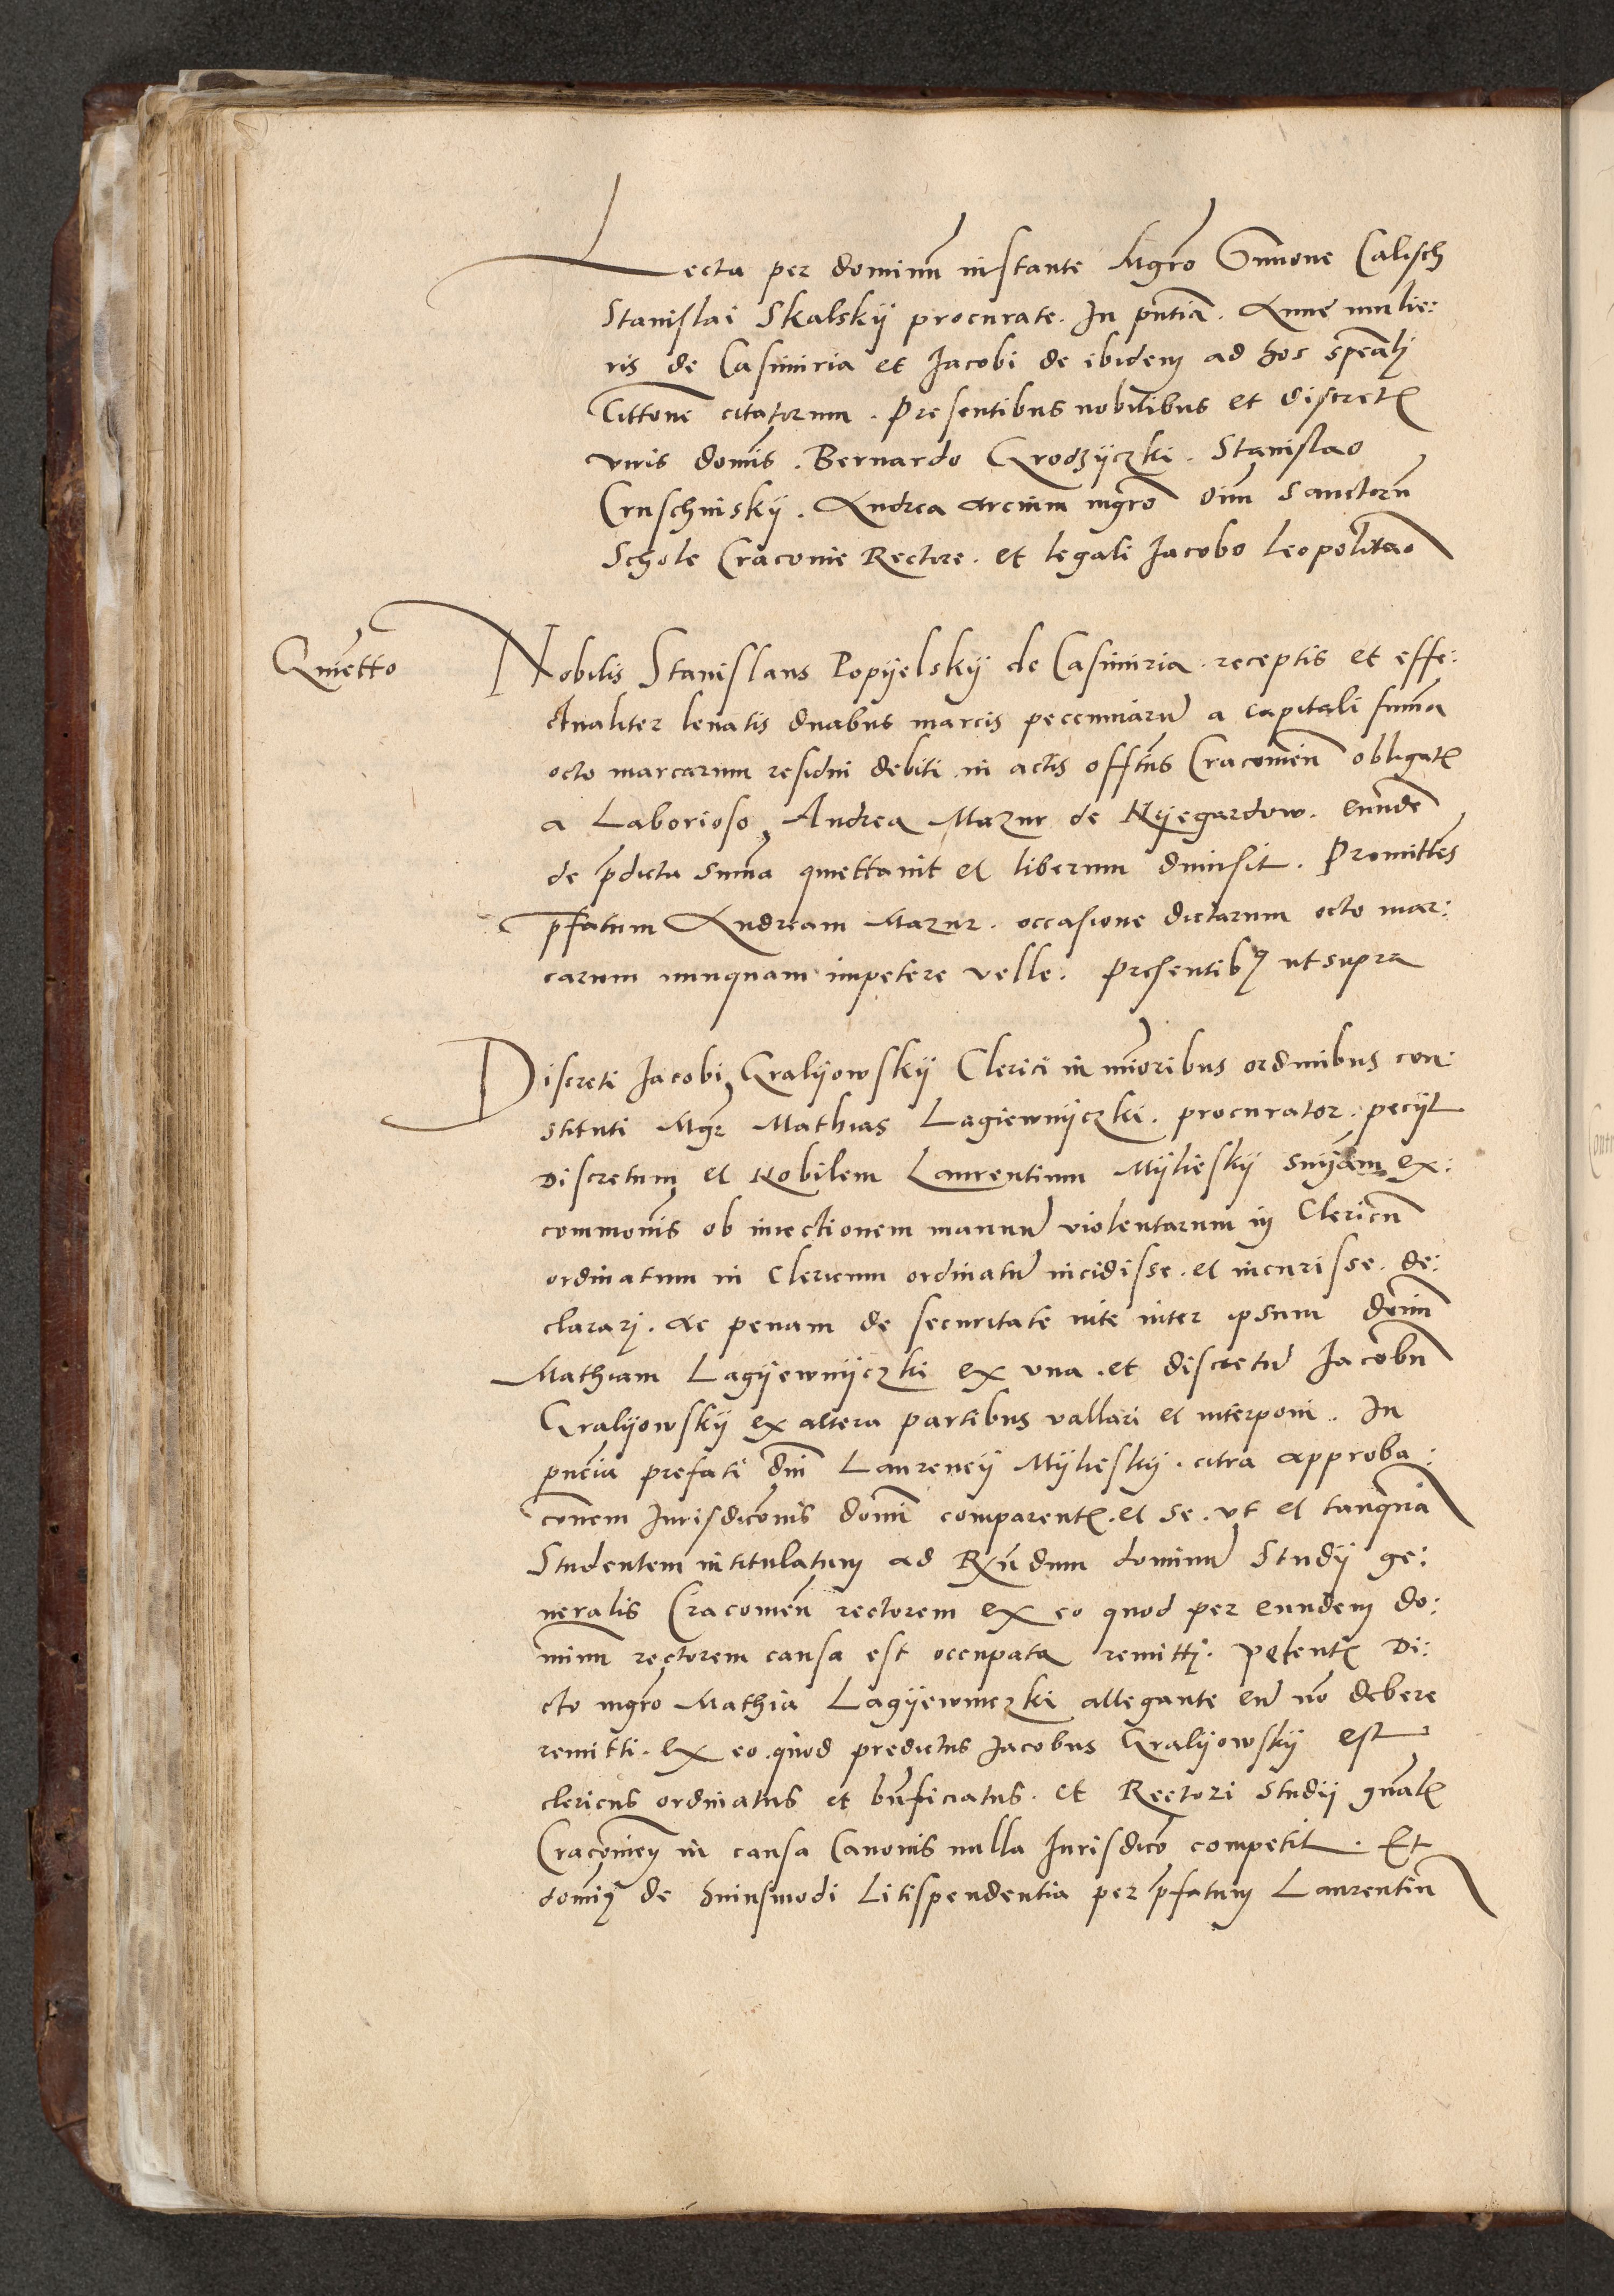 Lecta per dominum instante Mgro Simone Calisch
Stanislai Skalskij procurate. In pntia. Anne mulie:
ris de Casimiria et Jacobi de ibidem ad hoc spealj
Cittone citatorum. Presentibus nobilibus et discret
viris domis. Bernardo Grodzijczki. Stanislao
Cruschinskij. Andrea arcium mgro Oim Sanctoru
Schole Cracovie Rectore. et legali Jacobo leopolitao
Quietto
Nobilis Stanislaus Popijelskij de Casimiria receptis et effe:
ctualiter levatis duabus marcis peccuniaru a capitali summa
octo marcarum residui debiti in actis offtius Cracovien obligat
a Laborioso Andrea Mazur de Nijegardow. eunde
de pdicta suma quettavit et liberum dimisit. Promittes
pfatum Andream Mazur. occasione dictarum octo mar:
carum nunquam impetere velle. Presentibq ut supra
Discreti Jacobi Gralijowskij Clerici in mioribus ordinibus con:
stituti Mgr Mathias Lagiewnijczki. procurator. pecijt
Discretum et Nobilem Laurentium Mijlieskij snijam ex:
commonis ob iniectionem manuu violentarum in Clericu
ordinatum in Clericum ordinatu incidisse. et incurisse. de:
clararj. Ac penam de securitate vite inter ipsum domi
Mathiam Lagijewnijczki ex una. et discretu Jacobu
Gralijowskij ex altera partibus vallari et interponi. In
pncia prefati dni Laurencij Mijlieskij. citra approba:
conem Jurisdiconis domi comparent. et se. ut et tanqua
Studentem intitulatum ad Rndum dominu Studij ge:
neralis Cracovien rectorem ex eo quod per eundem do:
minu rectorem causa est occupata remittj. petent Di:
cto mgro Mathia Lagijewniczki allegante eu no debere
remitti. ex eo quod predictus Jacobus Gralijowskij est
clericus ordinatus et bnficiatus. et Rectori Studij gnal
Cracovien in causa Canonis nulla Jurisdico competit. Et
domi de huiusmodi Litispendentia per pfatum Laurentiu